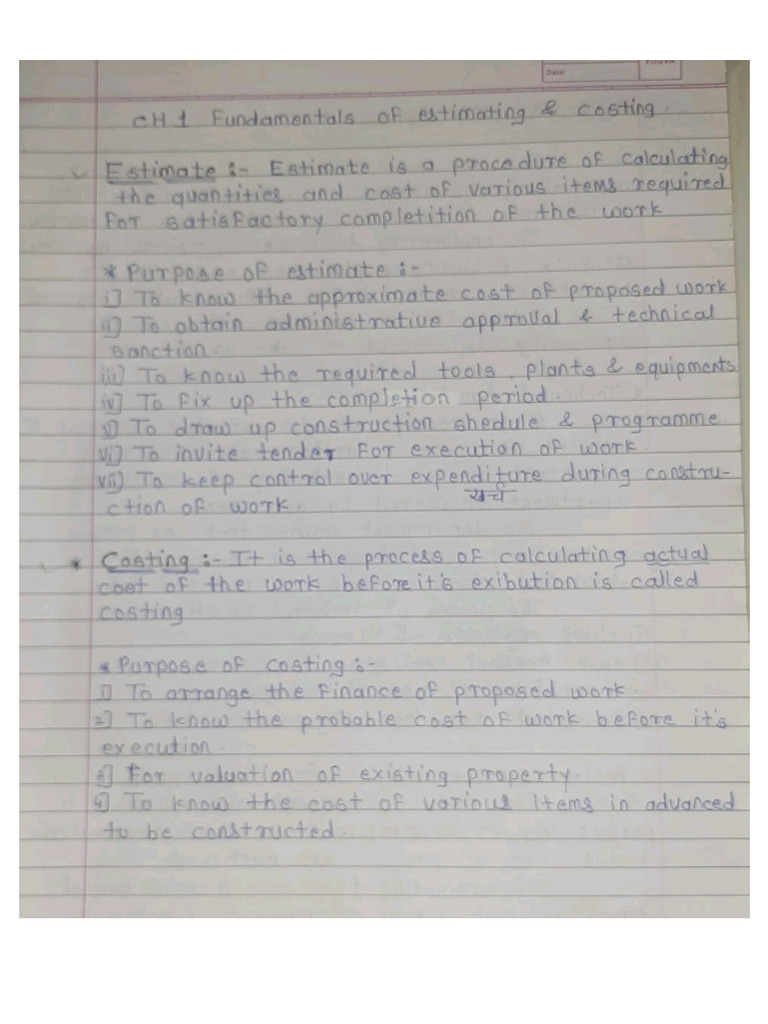 Date:
CH 1 Fundamentals of estimating & costing.
Estimate :- Estimate is a procedure of calculating
the quantities and cost of various items required
For satisfactory completition of the work
* Purpose of estimate :-
i] To know the approximate cost of proposed work
ii] To obtain administrative approval & technical
sanction
iii] To know the required tools, plants & equipments
iv] To fix up the completion period.
v] To draw up construction shedule & programme
vi] To invite tender For execution of work
vii] To keep control over expenditure during constru-
खर्च
ction of work.
* Costing :- It is the process of calculating actual
cost of the work before it's exibution is called
costing
* Purpose of costing :-
1] To arrange the Finance of proposed work.
2] To know the probable cost of work before it's
execution.
3] For valuation of existing property.
4] To know the cost of various Items in advanced
to be constructed